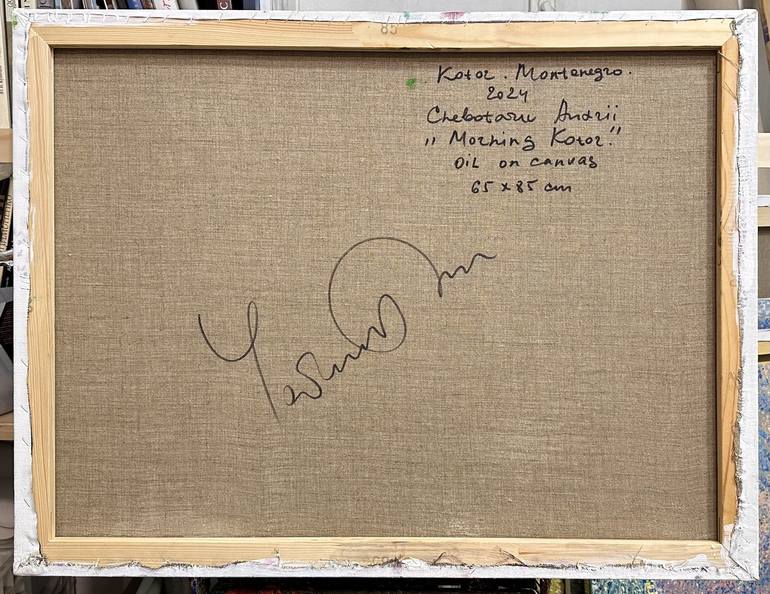 85
Kotor. Montenegro.
2024
Chebotaru Andrii
„ Morning Kotor."
oil on canvas
65 x 85 cm